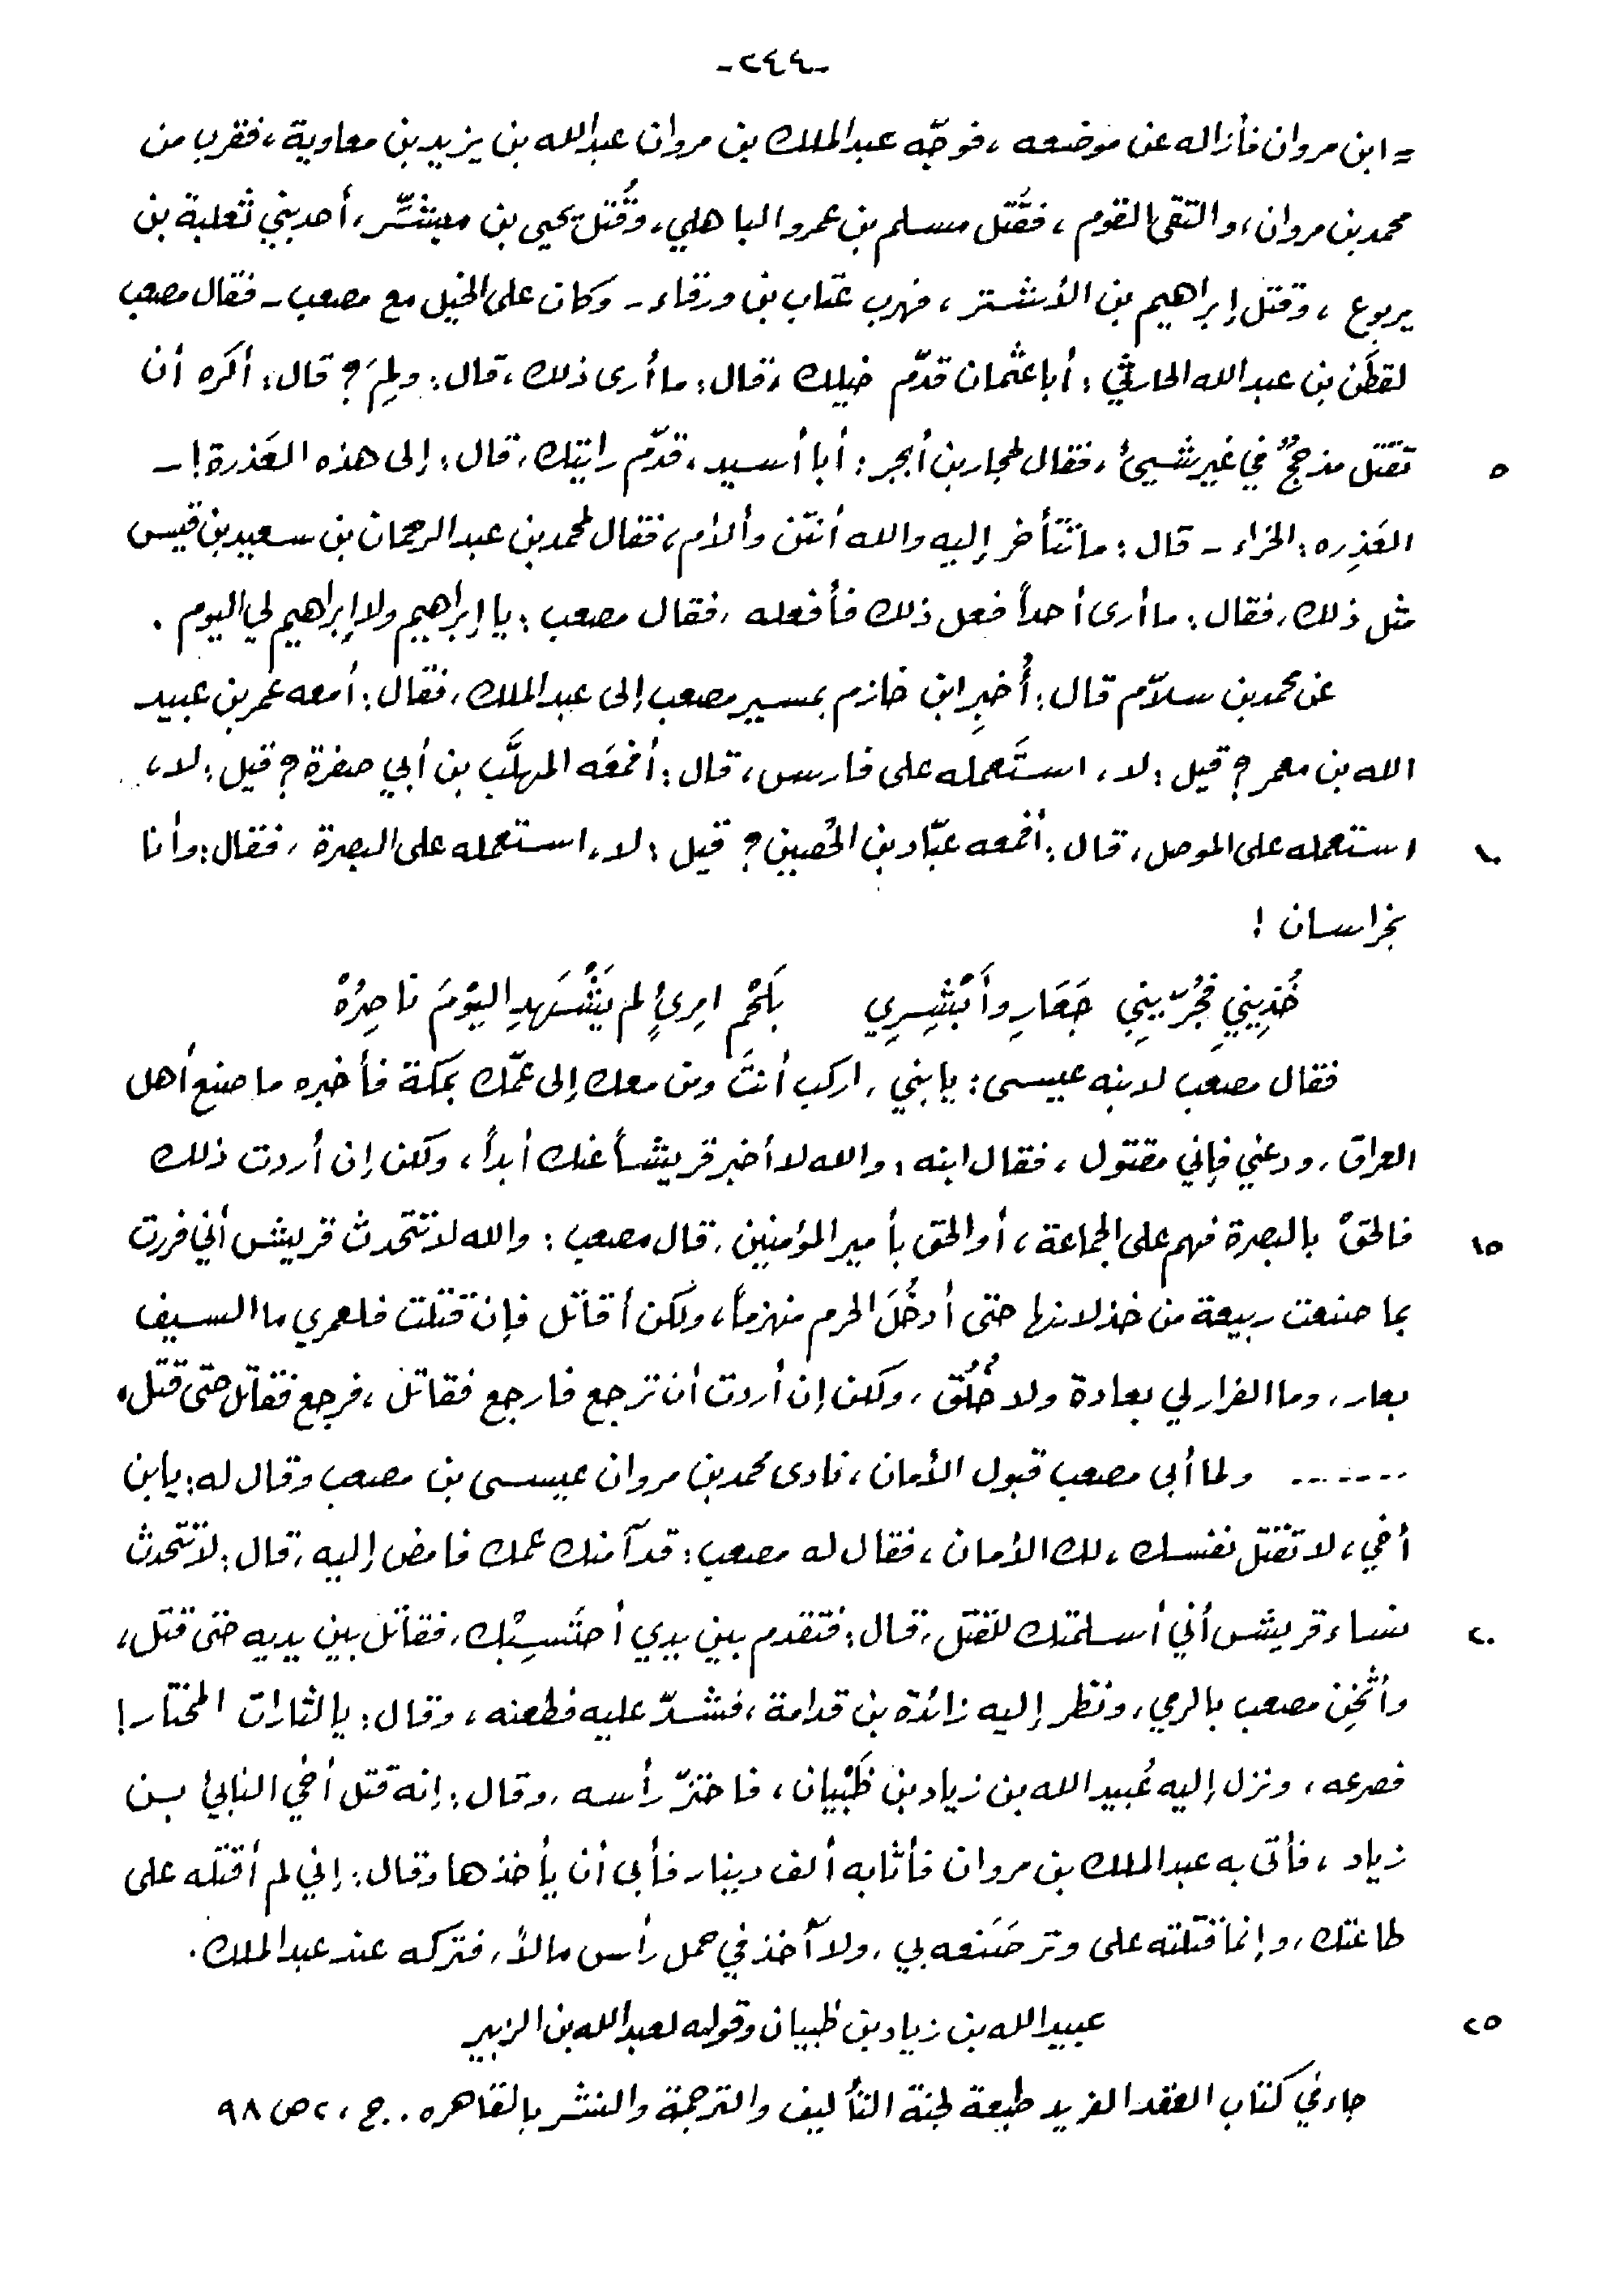 -٢٤٤-
= ابن مروان فأزاله عن موضعه، فوجّه عبد الملك بن مروان عبدالله بن يزيد بن معاوية، فقرب من
محمد بن مروان، والتقى القوم، فقُتل مسلم بن عمرو الباهلي، وقُتل يحيى بن مبشّر، أحد بني ثعلبة بن
يربوع، وقتل إبراهيم بن الأشتر، فهرب عتاب بن ورقاء - وكان على الخيل مع مصعب - فقال مصعب
لقطَن بن عبد الله الحارثي: أبا عثمان قدّم خيلك، قال: ما أرى ذلك، قال: ولِمَ؟ قال: أكره أن
٥ تقتل مذحجٌ في غير شيئ، فقال لحجار بن أبجر: أبا أسيد، قدّم رايتك، قال: إلى هذه العَذرة! -
العَذِره: الخراء - قال: ما تتأخر إليه والله أنتن وألأم، فقال لمحمد بن عبد الرحمان بن سعيد بن قيس
مثل ذلك، فقال: ما أرى أحداً فعل ذلك فأفعله، فقال مصعب: يا إبراهيم ولا إبراهيم لي اليوم.
عن محمد بن سلاّم قال: أُخبِر ابن خازم بمسير مصعب إلى عبد الملك، فقال: أمعه عمر بن عبيد
الله بن معمر؟ قيل: لا، استَعمله على فارس، قال: أفمعَه المهلَّب بن أبي صفرة؟ قيل: لا،
١٠ استعمله على الموصل، قال: أفمعه عبّاد بن الحُصين؟ قيل: لا، استعمله على البصرة، فقال: وأنا
بخراسان!
خُذِيِني فجُرّيني جَعَارِ وأَبْشِرِي بَلحْم امرئٍ لم يَشْهَدِ اليوْمَ ناصِرُهْ
فقال مصعب لابنه عيسى: يا بني، اركب أنتَ ومن معك إلى عمّك بمكة فأخبره ما صنع أهل
العراق، ودعني فإني مقتول، فقال ابنه: والله لا أخبر قريشاً عنك أبداً، ولكن إن أردت ذلك
١٥ فالحقْ بالبصرة فهم على الجماعة، أو الحق بأمير المؤمنين، قال مصعب: والله لا تتحدث قريش أني فررت
بما صنعت ربيعة من خذلانها حتى أدخُلَ الحرم منهزماً، ولكن أقاتل فإن قتلت فلعمري ما السيف
بعار، وما الفرار لي بعادة ولا خُلُق، ولكن إن أردت أن ترجع فارجع فقاتل، فرجع فقاتل حتى قتل.
------- ولما أبى مصعب قبول الأمان، نادى محمد بن مروان عيسى بن مصعب وقال له: يابن
أخي، لا تقتل نفسك، لك الأمان، فقال له مصعب: قد آمنك عمك فامض إليه، قال: لا تتحدث
٢٠ نساء قريش أني أسلمتك للقتل، قال: فتقدم بين يدي أحتسِبْك، فقاتل بين يديه حتى قتل،
وأثخِن مصعب بالرمي، ونظر إليه زائدة بن قدامة، فشدّ عليه فطعنه، وقال: يالثارات المختار!
فصرعه، ونزل إليه عُبيد الله بن زياد بن ظَبْيان، فاحتزّ رأسه، وقال: إنه قتل أخي النابئ بـن
زياد، فأتى به عبد الملك بن مروان فأثابه ألف دينار فأبى أن يأخذها وقال: إني لم أقتله على
طاعتك، وإنما قتلته على وتر صَنَعه بي، ولا آخذ في حمل رأس مالاً، فتركه عند عبد الملك.
٢٥ عبيد الله بن زياد بن ظبيان وقوله لعبد الله بن الزبير
جاء في كتاب العقد الفريد طبعة لجنة التأليف والترجمة والنشر بالقاهره.. ج، ٢ ص ٩٨